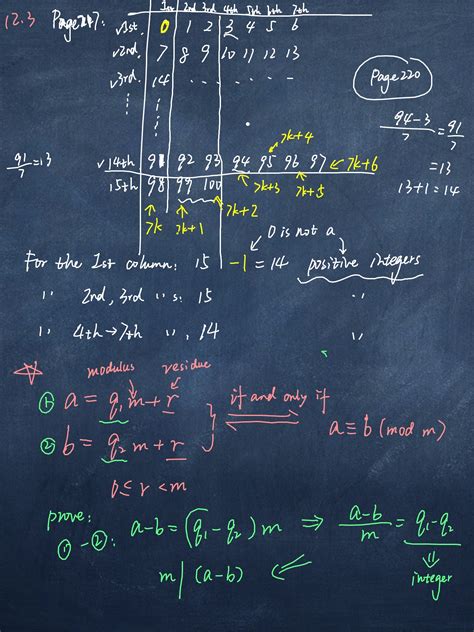 12.3 Page 217:
1st 2nd 3rd 4th 5th 6th 7th
√1st. 0 1 2 3 4 5 6
√2nd. 7 8 9 10 11 12 13
√3rd. 14 - - - - - -
Page 220
(94-3)/7 = 91/7
= 13
13+1 = 14
7k+4
91/7 = 13
√14th 91 92 93 94 95 96 97 ← 7k+6
15th 98 99 100 7k+3 7k+5
7k 7k+1 7k+2
0 is not a
For the 1st column: 15 -1 = 14 positive integers
" 2nd, 3rd " s: 15 "
" 4th → 7th ", 14 "
modulus residue
① a = q₁m + r
if and only if
② b = q₂m + r
a ≡ b (mod m)
0 ≤ r < m
prove:
① - ②: a-b = (q₁-q₂)m ⇒ (a-b)/m = q₁-q₂
m | (a-b) ⇐
integer